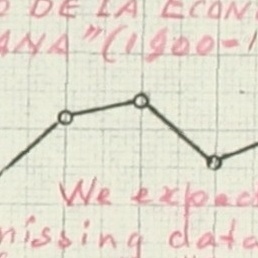 O DE LA ECON
ANA" (1900-1
We expec
missing data